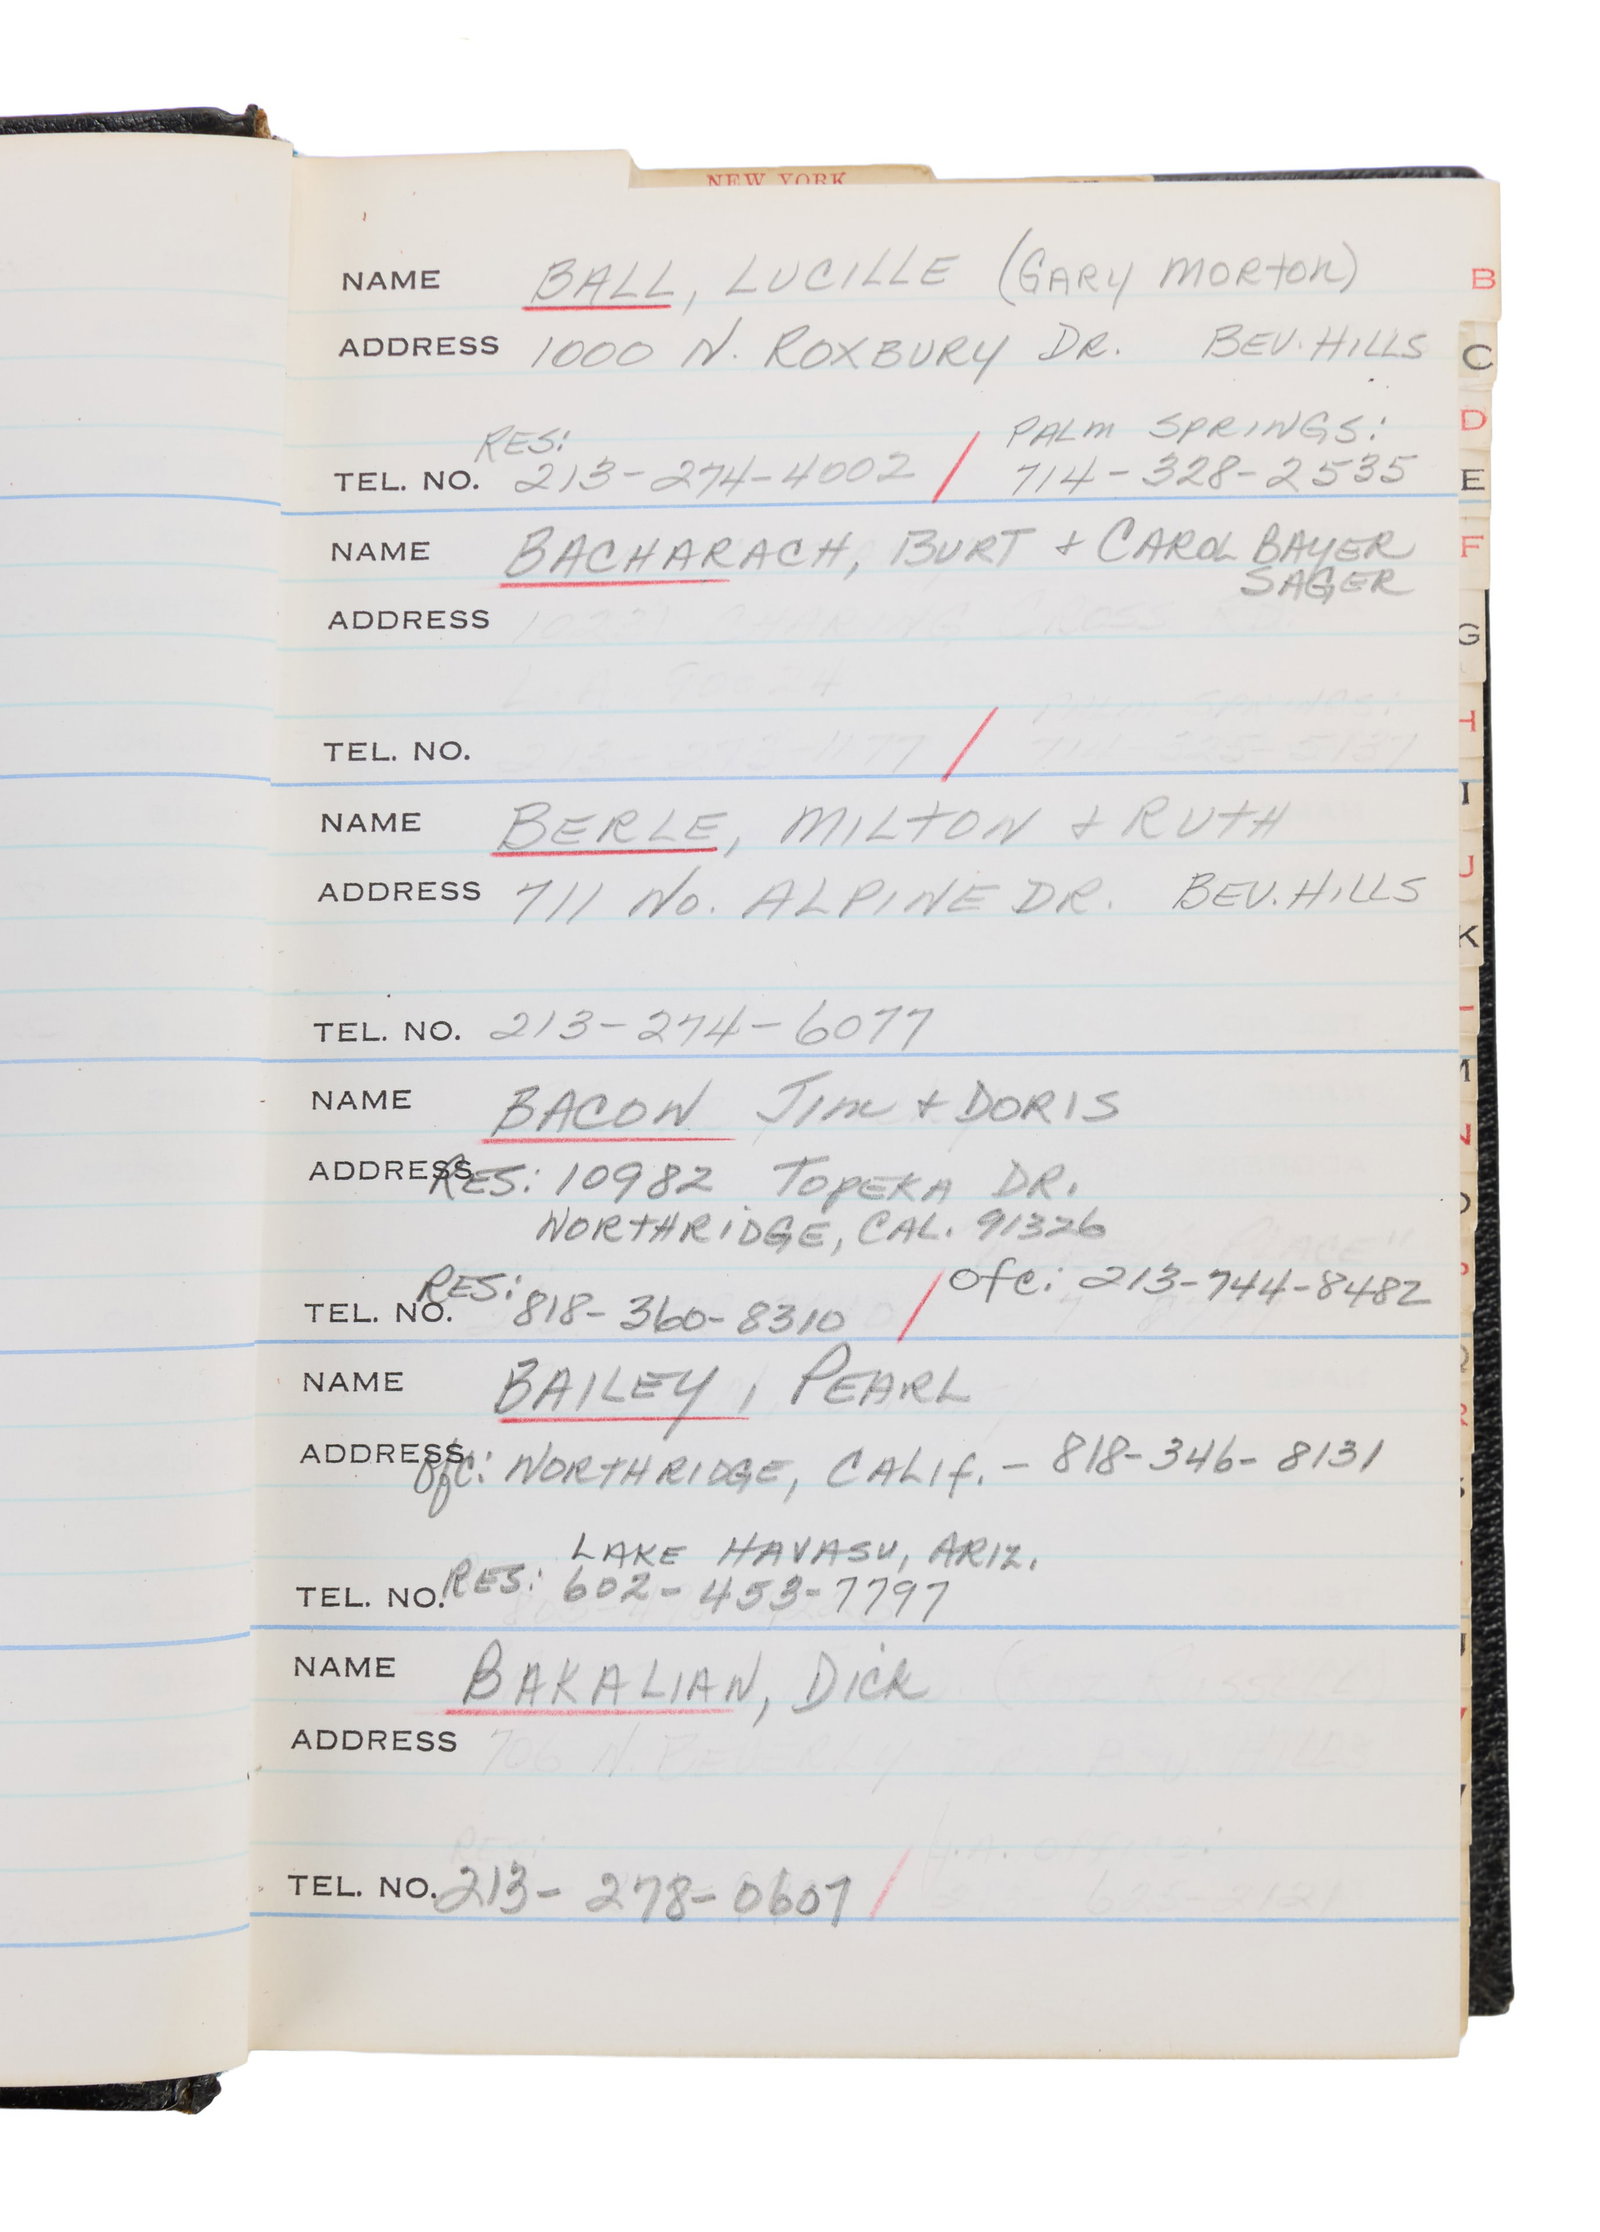 NEW YORK
NAME BALL, LUCILLE (GARY MORTON)
ADDRESS 1000 N. ROXBURY DR. BEV. HILLS
RES: PALM SPRINGS:
TEL. NO. 213-274-4002 / 714-328-2535
NAME BACHARACH, BURT + CAROL BAYER
SAGER
ADDRESS
TEL. NO. /
NAME BERLE, MILTON + RUTH
ADDRESS 711 No. ALPINE DR. BEV. HILLS
TEL. NO. 213-274-6077
NAME BACON JIM + DORIS
ADDRESS RES: 10982 TOPEKA DR.
NORTHRIDGE, CAL. 91326
RES: / Ofc: 213-744-8482
TEL. NO. 818-360-8310
NAME BAILEY, PEARL
ADDRESS Ofc: NORTHRIDGE, CALIF. - 818-346-8131
LAKE HAVASU, ARIZ.
TEL. NO. RES: 602-453-7797
NAME BAKALIAN, DICK
ADDRESS
TEL. NO. 213-278-0607 /
B
C
D
E
F
G
H
I
J
K